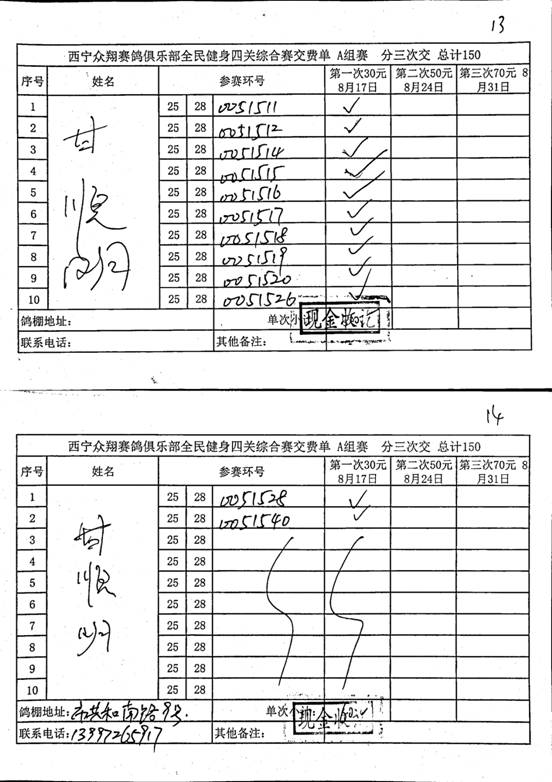 13
西宁众翔赛鸽俱乐部全民健身四关综合赛交费单 A组赛 分三次交 总计150
序号 姓名 参赛环号 第一次30元 8月17日 第二次50元 8月24日 第三次70元 8月31日
1 25 28 0051511 ✓
2 25 28 0051512 ✓
3 25 28 0051514 ✓
4 25 28 0051515 ✓
5 25 28 0051516 ✓
6 25 28 0051517 ✓
7 25 28 0051518 ✓
8 25 28 0051519 ✓
9 25 28 0051520 ✓
10 25 28 0051526 ✓
甘顺
鸽棚地址: 单次小 现金收讫
联系电话: 其他备注:
14
西宁众翔赛鸽俱乐部全民健身四关综合赛交费单 A组赛 分三次交 总计150
序号 姓名 参赛环号 第一次30元 8月17日 第二次50元 8月24日 第三次70元 8月31日
1 25 28 0051528 ✓
2 25 28 0051540 ✓
3 25 28
4 25 28
5 25 28
6 25 28
7 25 28
8 25 28
9 25 28
10 25 28
甘顺
鸽棚地址:市共和南路9号. 单次小 现金收讫
联系电话:13997265917 其他备注: